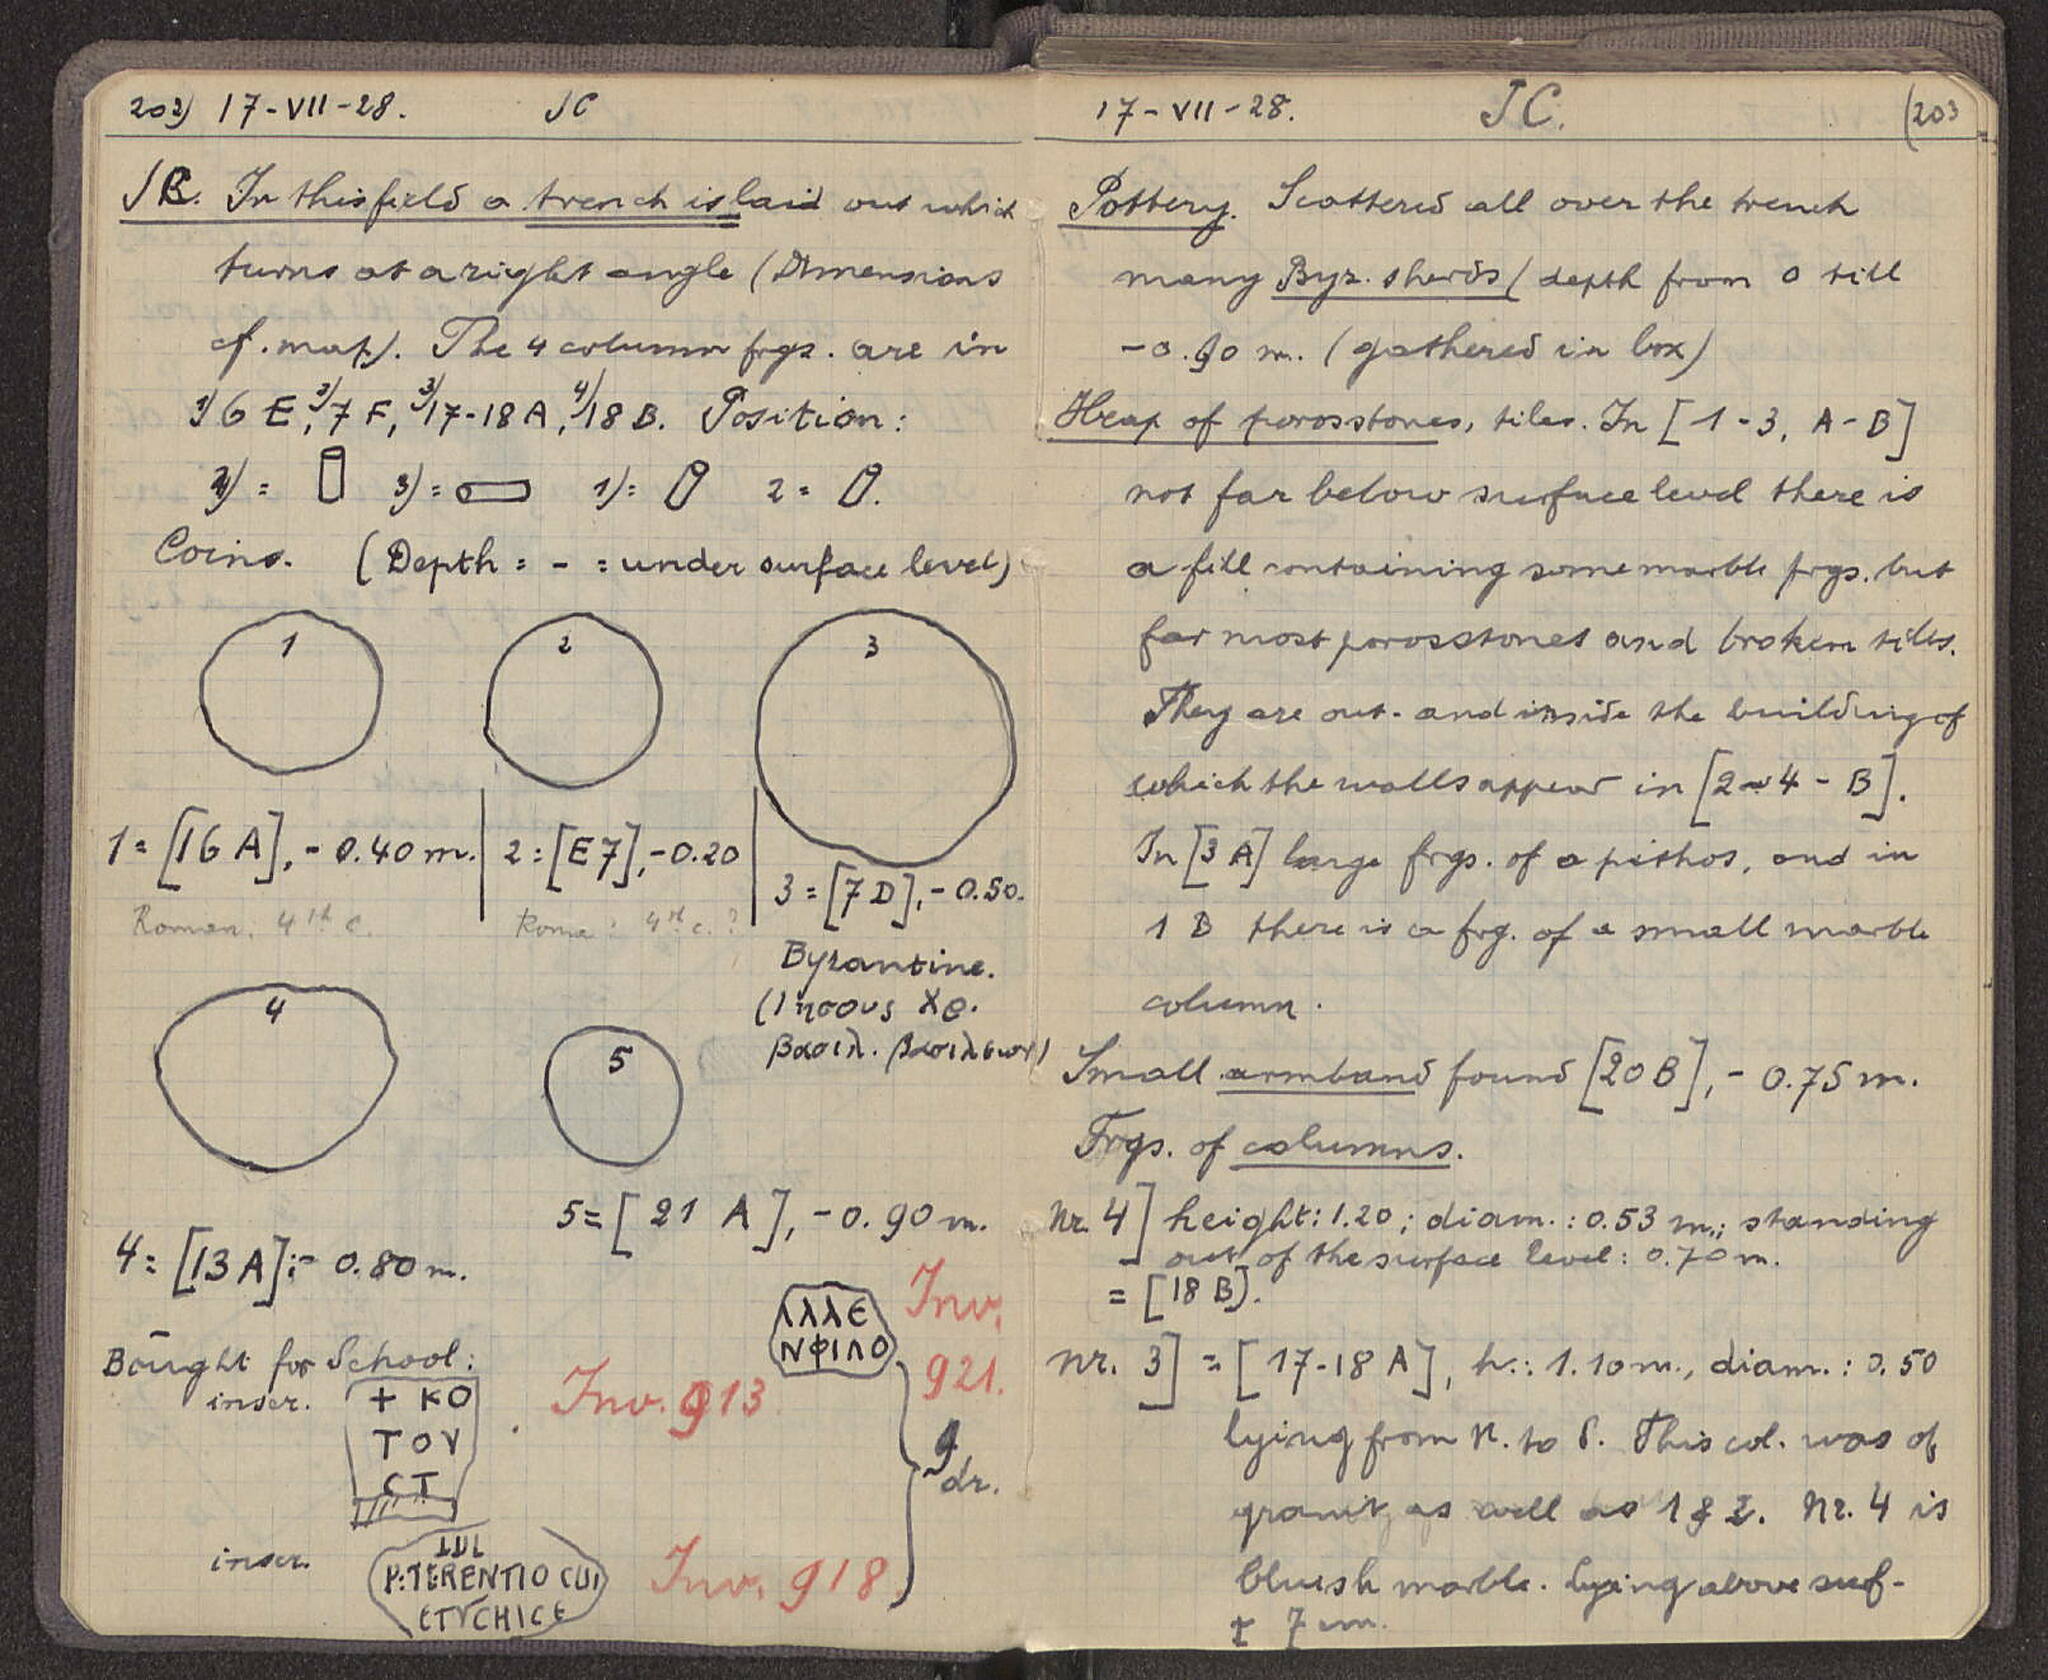 202) 17-VII-28. JC
JC. In this field a trench is laid out which
turns at a right angle (Dimensions
cf. map). The 4 column frgs. are in
1) 6 E, 2) 7 F, 3) 17-18 A, 4) 18 B. Position:
4) = 3) = 1) = 2 =
Coins. (Depth = - = under surface level)
1 2 3
1 = [16 A], - 0.40 m. 2 = [E7], -0.20
3 = [7 D], - 0.50.
Roman: 4th c. Roma: 4th c.?
Byzantine.
(Ιησους Χρ.
βασιλ. βασιλεων)
4 5
5 = [21 A], - 0.90 m.
4 = [13 A]; - 0.80 m.
Bought for School:
inscr.
+ KO
TOV
CT
Inv. 913
ΛΛΛΕ
ΝΦΙΛΟ
Inv.
921.
9
dr.
inscr.
P.TERENTIO CUI
ETVCHICE
Inv. 918
17-VII-28. JC. (203
Pottery. Scattered all over the trench
many Byz. sherds (depth from 0 till
-0.90 m. (gathered in box)
Heap of porosstones, tiles. In [1-3, A-B]
not far below surface level there is
a fill containing some marble frgs. but
far most porosstones and broken tiles.
They are out- and inside the building of
which the walls appear in [2-4 - B].
In [3 A] large frgs. of a pithos, and in
1 B there is a frg. of a small marble
column.
Small armband found [20 B], - 0.75 m.
Frgs. of columns.
Nr. 4] height: 1.20; diam.: 0.53 m.; standing
out of the surface level: 0.70 m.
= [18 B].
nr. 3] = [17-18 A], h.: 1.10 m., diam.: 0.50
lying from N. to S. This col. was of
granit as well as 1 & 2. Nr. 4 is
bluish marble. lying above surf-
± 7 cm.